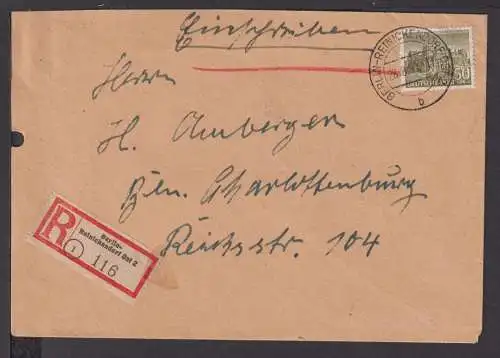 Einschreiben
BERLIN-REINICKENDORF
b
50
Herrn
H. Amberger
Bln. Charlottenburg
Reichsstr. 104
R
Berlin-
Reinickendorf Ost 2
1
116